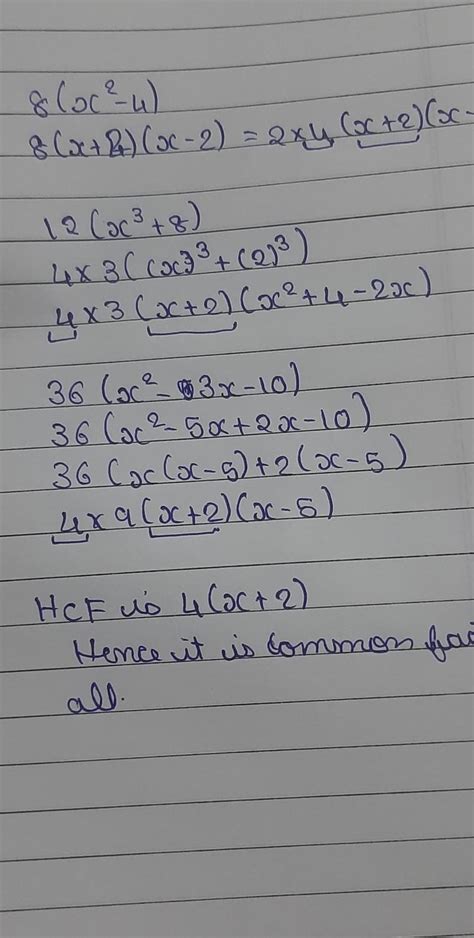 8(x²-4)
8(x+2)(x-2) = 2×4(x+2)(x-
12(x³+8)
4×3((x)³+(2)³)
4×3(x+2)(x²+4-2x)
36(x²-3x-10)
36(x²-5x+2x-10)
36(x(x-5)+2(x-5)
4×9(x+2)(x-5)
HCF is 4(x+2)
Hence it is common fac
all.